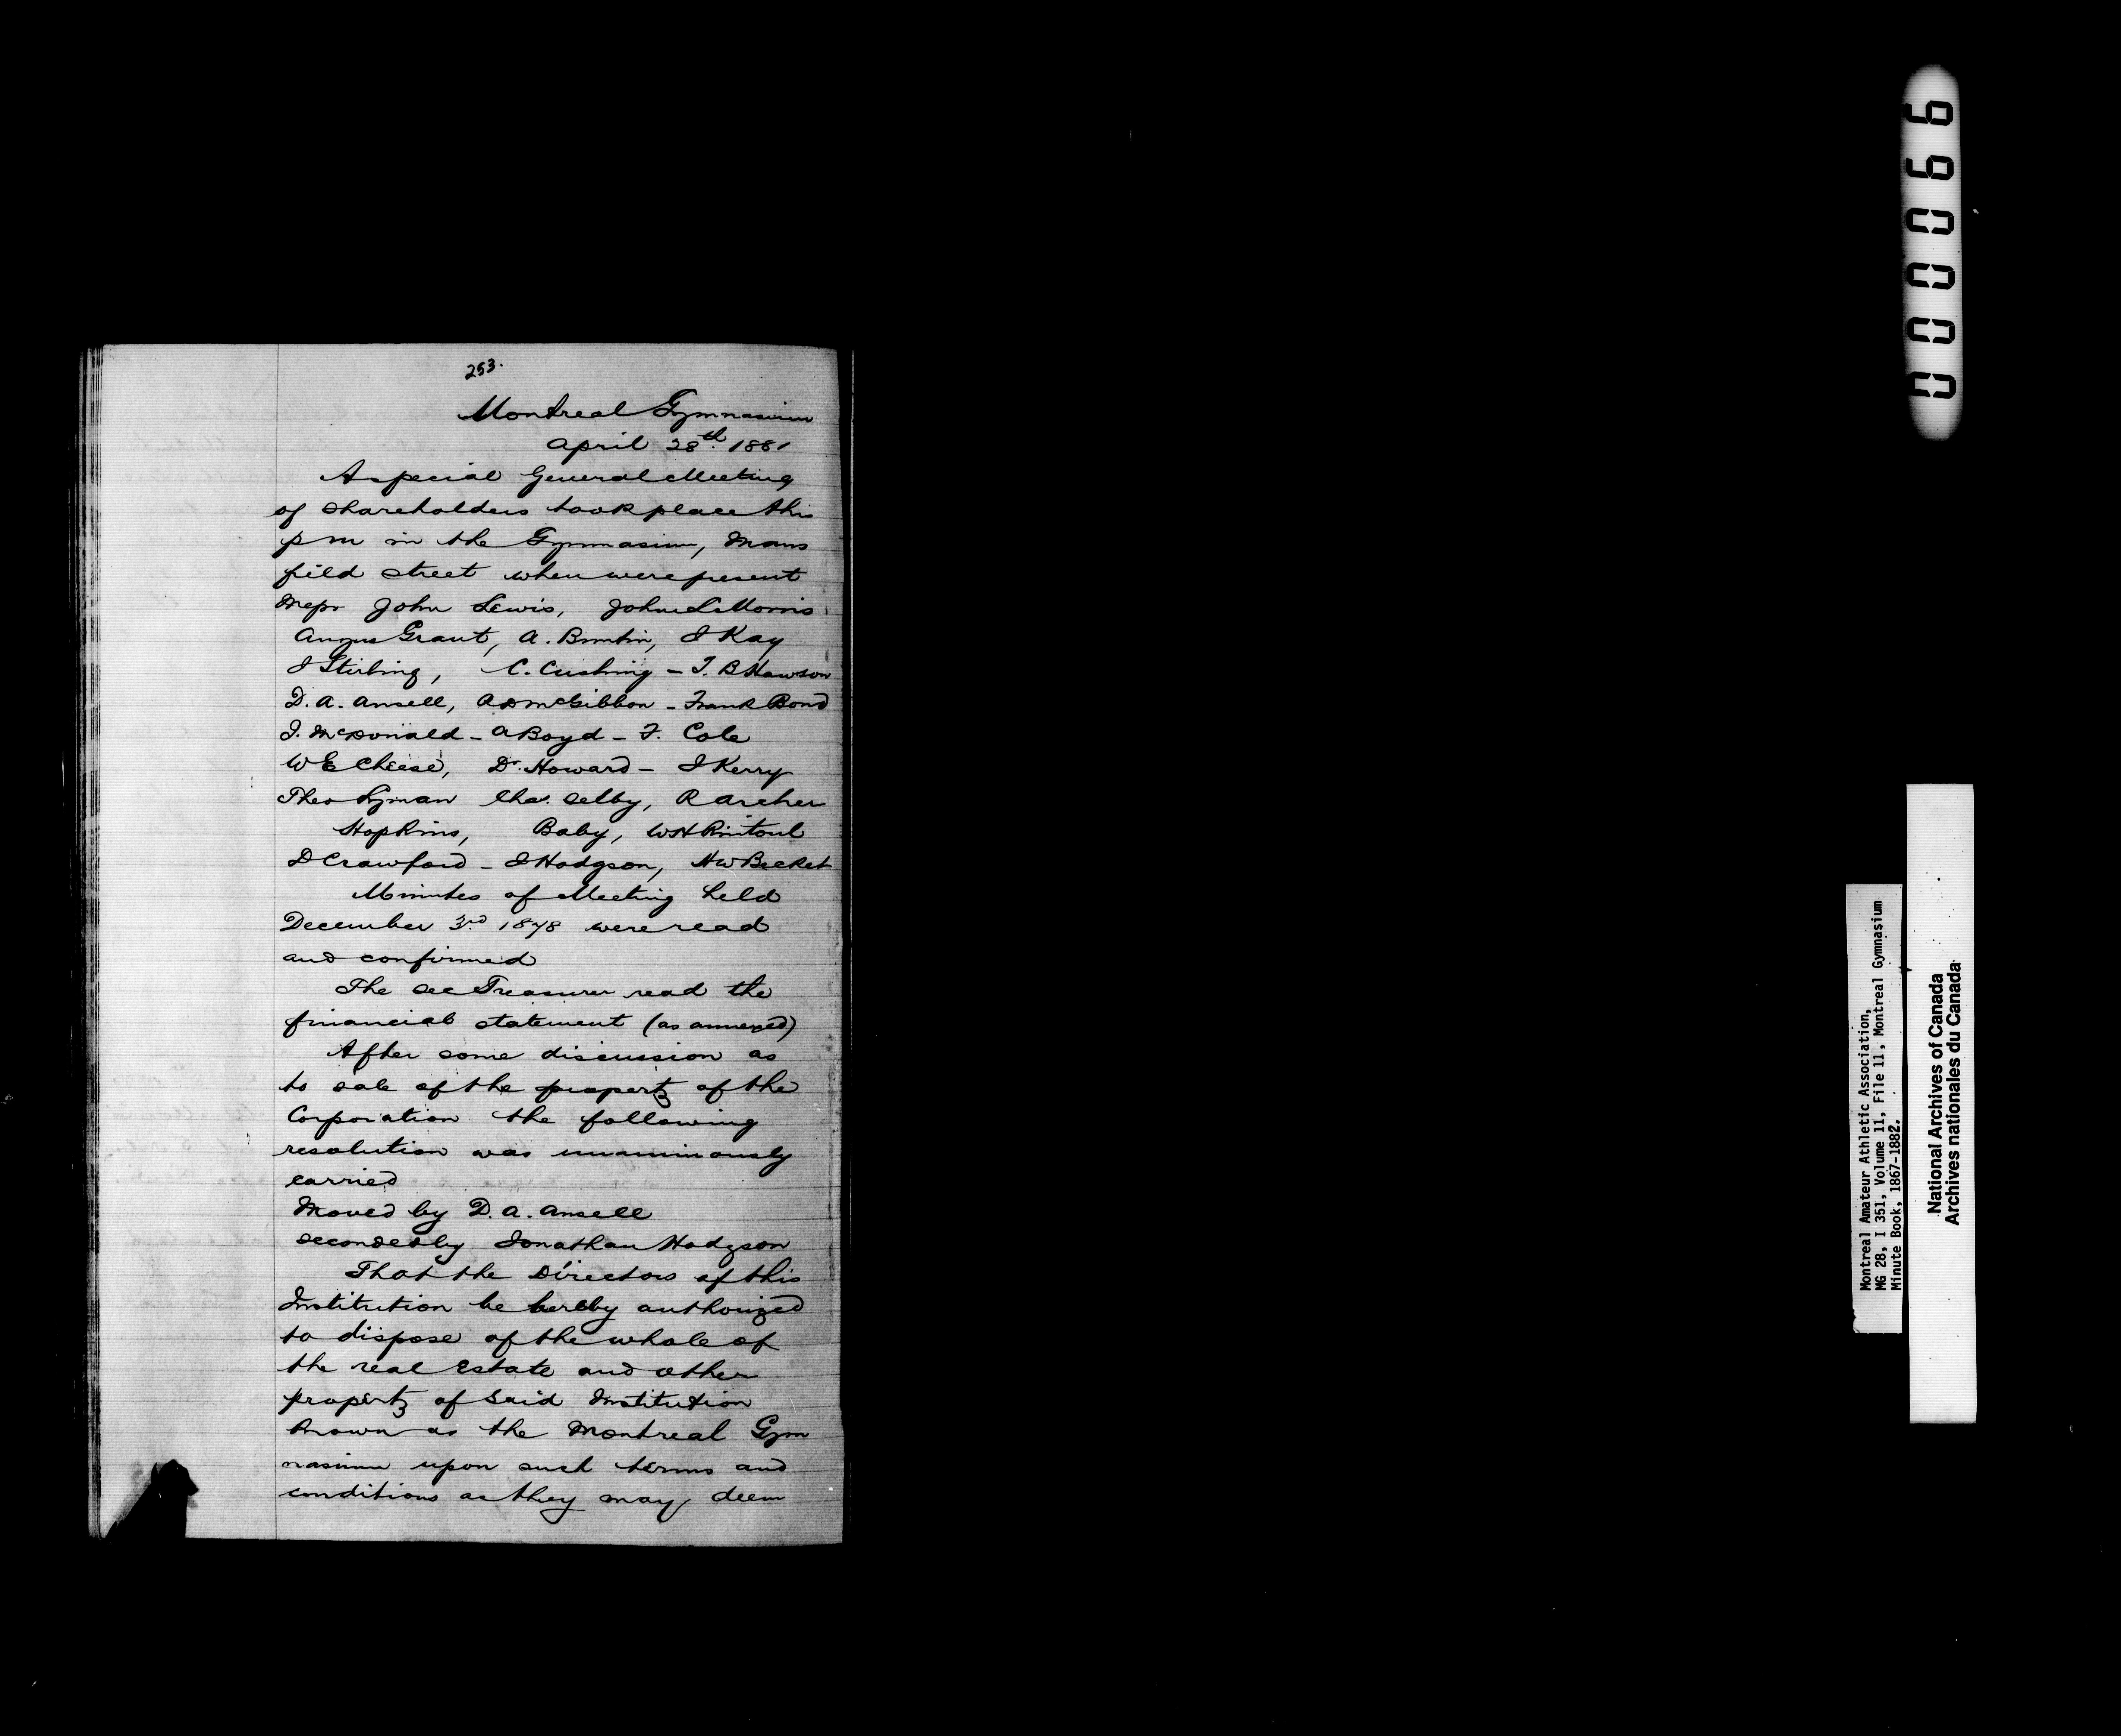 253.
Montreal Gymnasium
April 28th 1881
A special General Meeting
of shareholders took place this
pm in the Gymnasium, Mans
field street when were present
Messrs John Lewis, John L Morris
Angus Grant, A. Buntin, J Kay
J Stirling, C. Cushing - T. B Hawson
D. A. Ansell, A D McGibbon - Frank Bond
J. McDonald - A Boyd - F. Cole
W E Cheese, Dr. Howard - J Kerry
Theo Lyman Chas. Selby, R Archer
Hopkins, Baby, W H Rintoul
D Crawford - J Hodgson, H W Becket
Minutes of Meeting held
December 3rd 1878 were read
and confirmed
The Sec Treasurer read the
financial statement (as annexed)
After some discussion as
to sale of the property of the
Corporation the following
resolution was unanimously
carried
Moved by D. A. Ansell
seconded by Jonathan Hodgson
That the Directors of this
Institution be hereby authorized
to dispose of the whole of
the real Estate and other
property of said Institution
known as the Montreal Gym
nasium upon such terms and
conditions as they may deem
000066
Montreal Amateur Athletic Association,
MG 28, I 351, Volume 11, File 11, Montreal Gymnasium
Minute Book, 1867-1882.
National Archives of Canada
Archives nationales du Canada